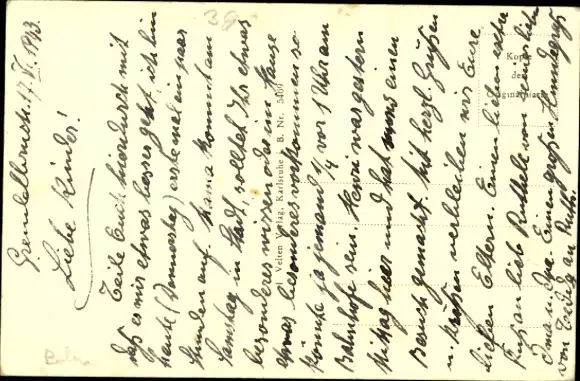 Grendelbruch, 17. VI. 1943.
Liebe Kinder!
Teile Euch hierdurch mit
daß es mir etwas besser geht, ich bin
heute (Donnerstag) erstemal ein paar
Stunden auf. Mama kommt am
Samstag in Stadt, solltet Ihr etwas
besonderes wissen oder im Hause
etwas besonderes vorkommen so
könnte ja jemand 1/4 vor 1 Uhr am
Bahnhofe sein. Henri war gestern
Mittag hier und hat uns einen
Besuch gemacht. Mit herzl. Grüßen
u. Küssen verbleiben wir Eure
lieben Eltern. Einen lieben extra
Kuß an liebe Ruthele von
Oma u. Opa. Einen großen
von Teddy an Ruth.
Karl Velten Verlag, Karlsruhe i. B. Nr. 540
Kopie
des
Originalfotos
39